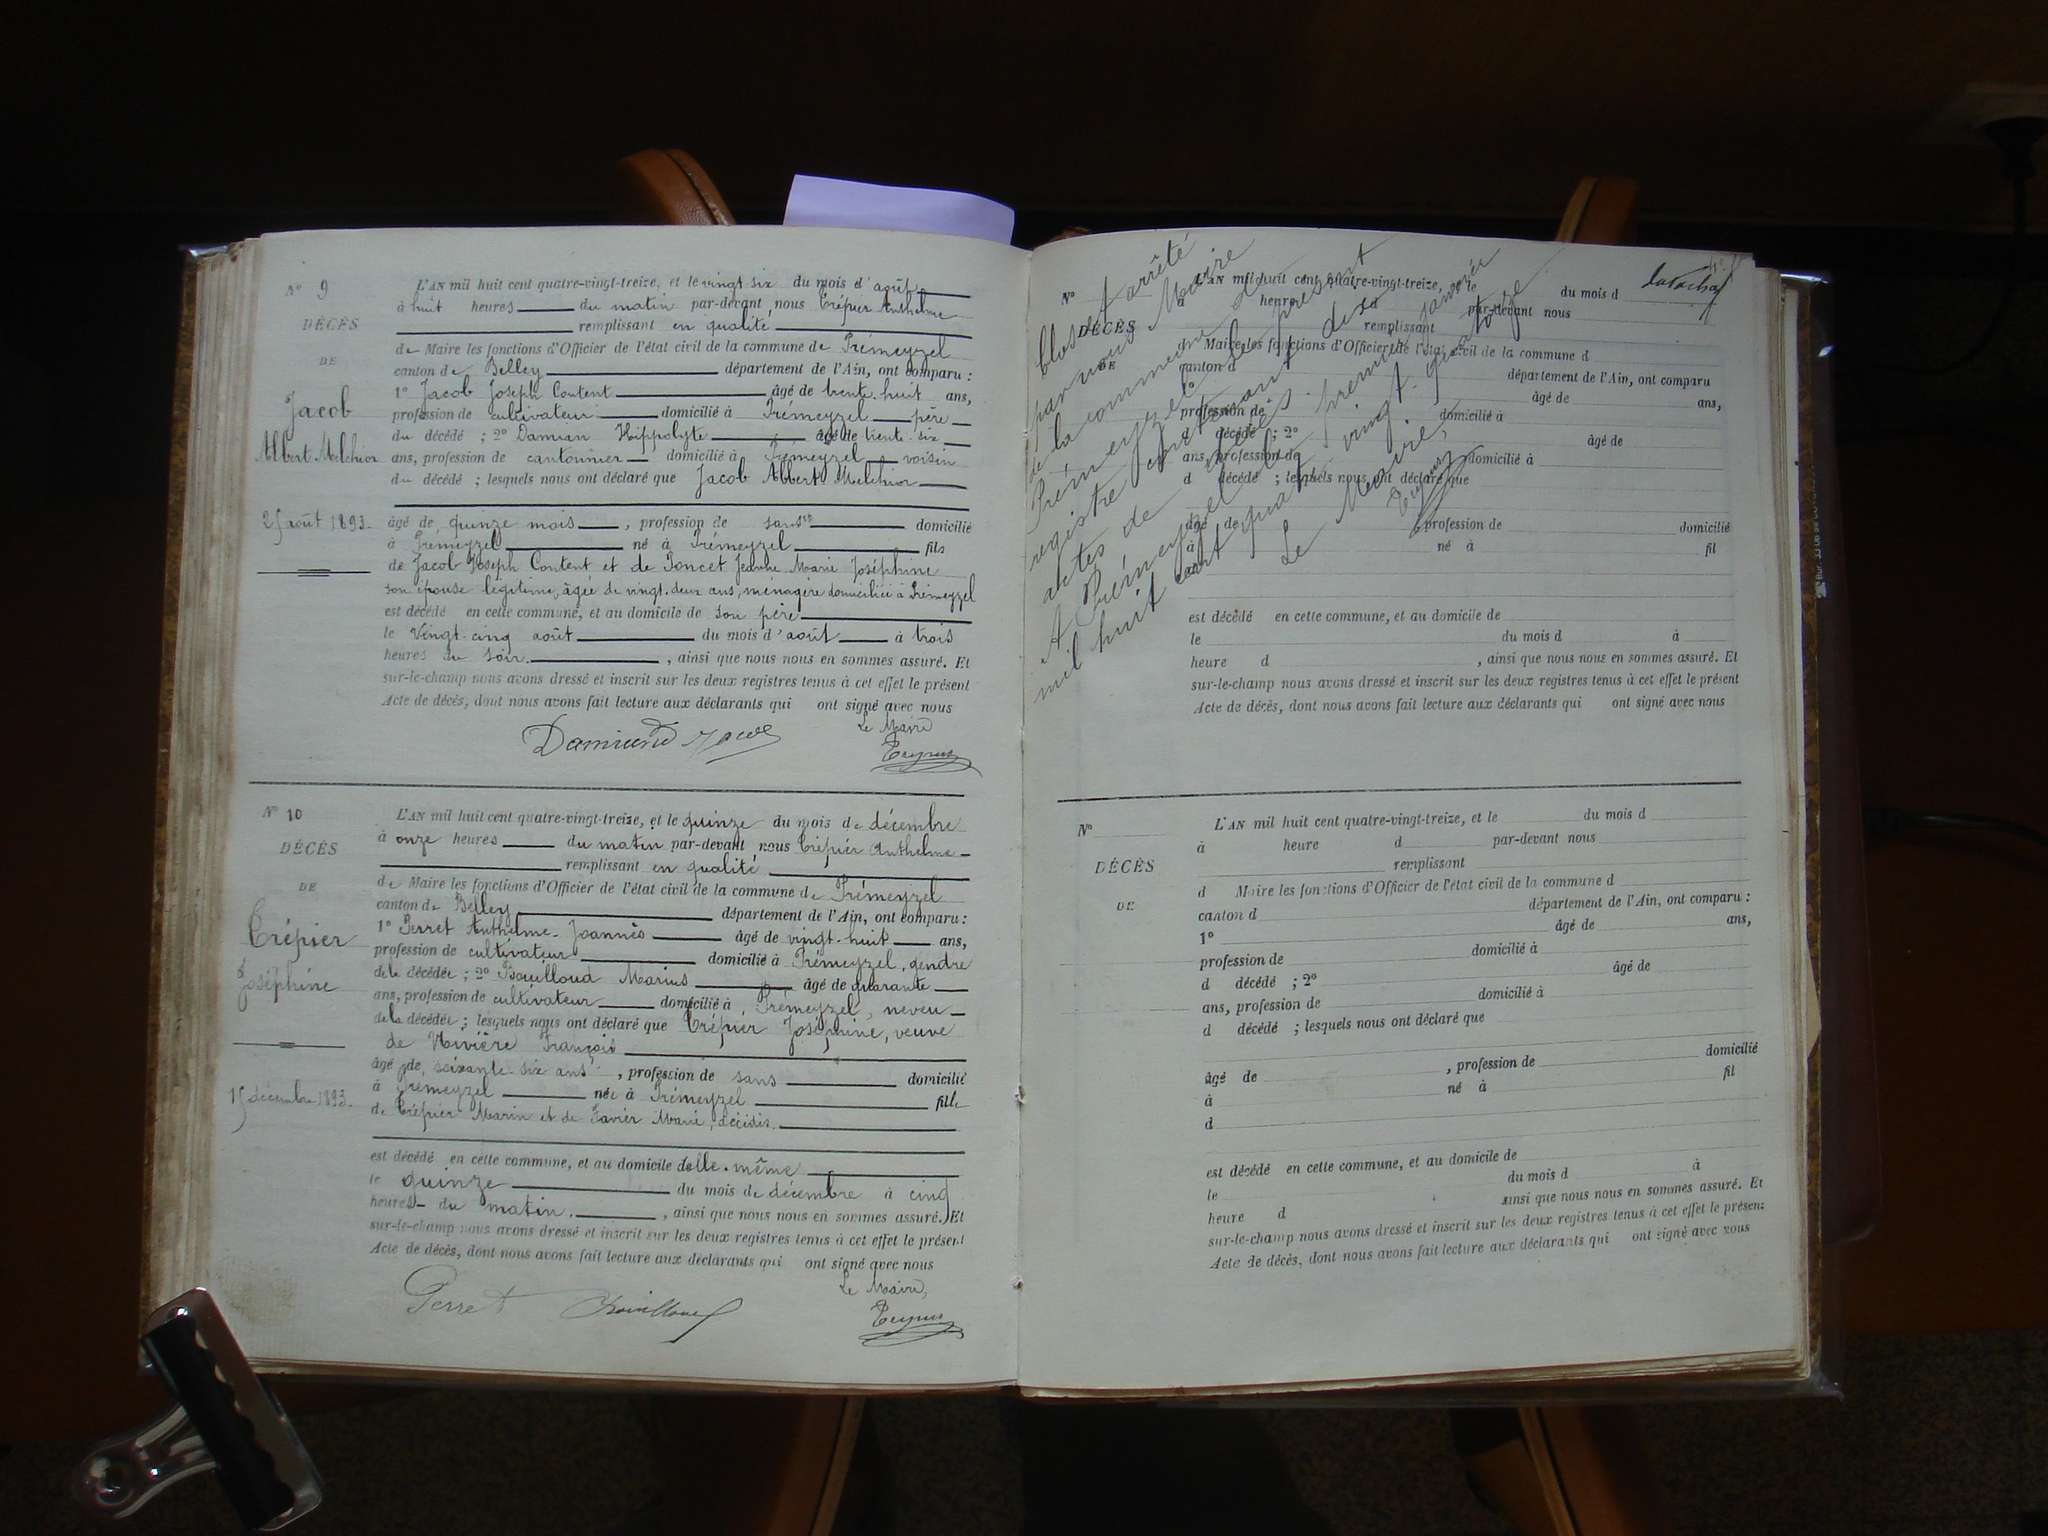 N° 9
DÉCÈS
DE
Jacob
Albert Melchior
25 août 1893.
L'AN mil huit cent quatre-vingt-treize, et le vingt-six du mois d'août
à huit heures du matin par-devant nous Trépier Anthelme
remplissant en qualité
de Maire les fonctions d'Officier de l'état civil de la commune de Prémeyzel
canton de Belley département de l'Ain, ont comparu :
1° Jacob Joseph Content âgé de trente-huit ans,
profession de cultivateur domicilié à Prémeyzel père
du décédé ; 2° Damian Hippolyte âgé de trente-six
ans, profession de cantonnier domicilié à Prémeyzel voisin
du décédé ; lesquels nous ont déclaré que Jacob Albert Melchior
âgé de quinze mois, profession de sans domicilié
à Prémeyzel né à Prémeyzel fils
de Jacob Joseph Content et de Poncet Jeanne Marie Joséphine
son épouse légitime, âgée de vingt-deux ans, ménagère domiciliée à Prémeyzel
est décédé en cette commune, et au domicile de son père
le Vingt-cinq août du mois d'août à trois
heures du soir, ainsi que nous nous en sommes assuré. Et
sur-le-champ nous avons dressé et inscrit sur les deux registres tenus à cet effet le présent
Acte de décès, dont nous avons fait lecture aux déclarants qui ont signé avec nous
Le Maire
N° 10
DÉCÈS
DE
Trépier
Joséphine
15 décembre 1893.
L'AN mil huit cent quatre-vingt-treize, et le quinze du mois de décembre
à onze heures du matin par-devant nous Trépier Anthelme
remplissant en qualité
de Maire les fonctions d'Officier de l'état civil de la commune de Prémeyzel
canton de Belley département de l'Ain, ont comparu :
1° Perret Anthelme-Joannès âgé de vingt-huit ans,
profession de cultivateur domicilié à Prémeyzel, gendre
de la décédée ; 2° Bouilloud Marius âgé de quarante
ans, profession de cultivateur domicilié à Prémeyzel, neveu
de la décédée ; lesquels nous ont déclaré que Trépier Joséphine, veuve
de Rivière François
âgé de, soixante-six ans, profession de sans domicilié
à Prémeyzel née à Prémeyzel fille
de Trépier Marin et de Marie, décédés.
est décédé en cette commune, et au domicile delle-même
le quinze du mois de décembre à cinq
heures du matin, ainsi que nous nous en sommes assuré. Et
sur-le-champ nous avons dressé et inscrit sur les deux registres tenus à cet effet le présent
Acte de décès, dont nous avons fait lecture aux déclarants qui ont signé avec nous
Le Maire,
Perret
Clos et arrêté
par nous Maire
de la commune de
Prémeyzel le présent
registre contenant dix
actes de décès.
A Prémeyzel le premier janvier
mil huit cent quatre-vingt-quatorze
Le Maire,
N°
DÉCÈS
DE
L'AN mil huit cent quatre-vingt-treize, et le du mois d
à heure d par-devant nous
remplissant
d Maire les fonctions d'Officier de l'état civil de la commune d
canton d département de l'Ain, ont comparu
1° âgé de ans,
profession de domicilié à
d décédé ; 2° âgé de
ans, profession de domicilié à
d décédé ; lesquels nous ont déclaré que
âgé de , profession de domicilié
à né à fil
est décédé en cette commune, et au domicile de
le du mois d à
heure d , ainsi que nous nous en sommes assuré. Et
sur-le-champ nous avons dressé et inscrit sur les deux registres tenus à cet effet le présent
Acte de décès, dont nous avons fait lecture aux déclarants qui ont signé avec nous
N°
DÉCÈS
DE
L'AN mil huit cent quatre-vingt-treize, et le du mois d
à heure d par-devant nous
remplissant
d Maire les fonctions d'Officier de l'état civil de la commune d
canton d département de l'Ain, ont comparu :
1° âgé de ans,
profession de domicilié à
d décédé ; 2° âgé de
ans, profession de domicilié à
d décédé ; lesquels nous ont déclaré que
âgé de , profession de domicilié
à né à fil
d
est décédé en cette commune, et au domicile de
le du mois d à
heure d ainsi que nous nous en sommes assuré. Et
sur-le-champ nous avons dressé et inscrit sur les deux registres tenus à cet effet le présent
Acte de décès, dont nous avons fait lecture aux déclarants qui ont signé avec nous